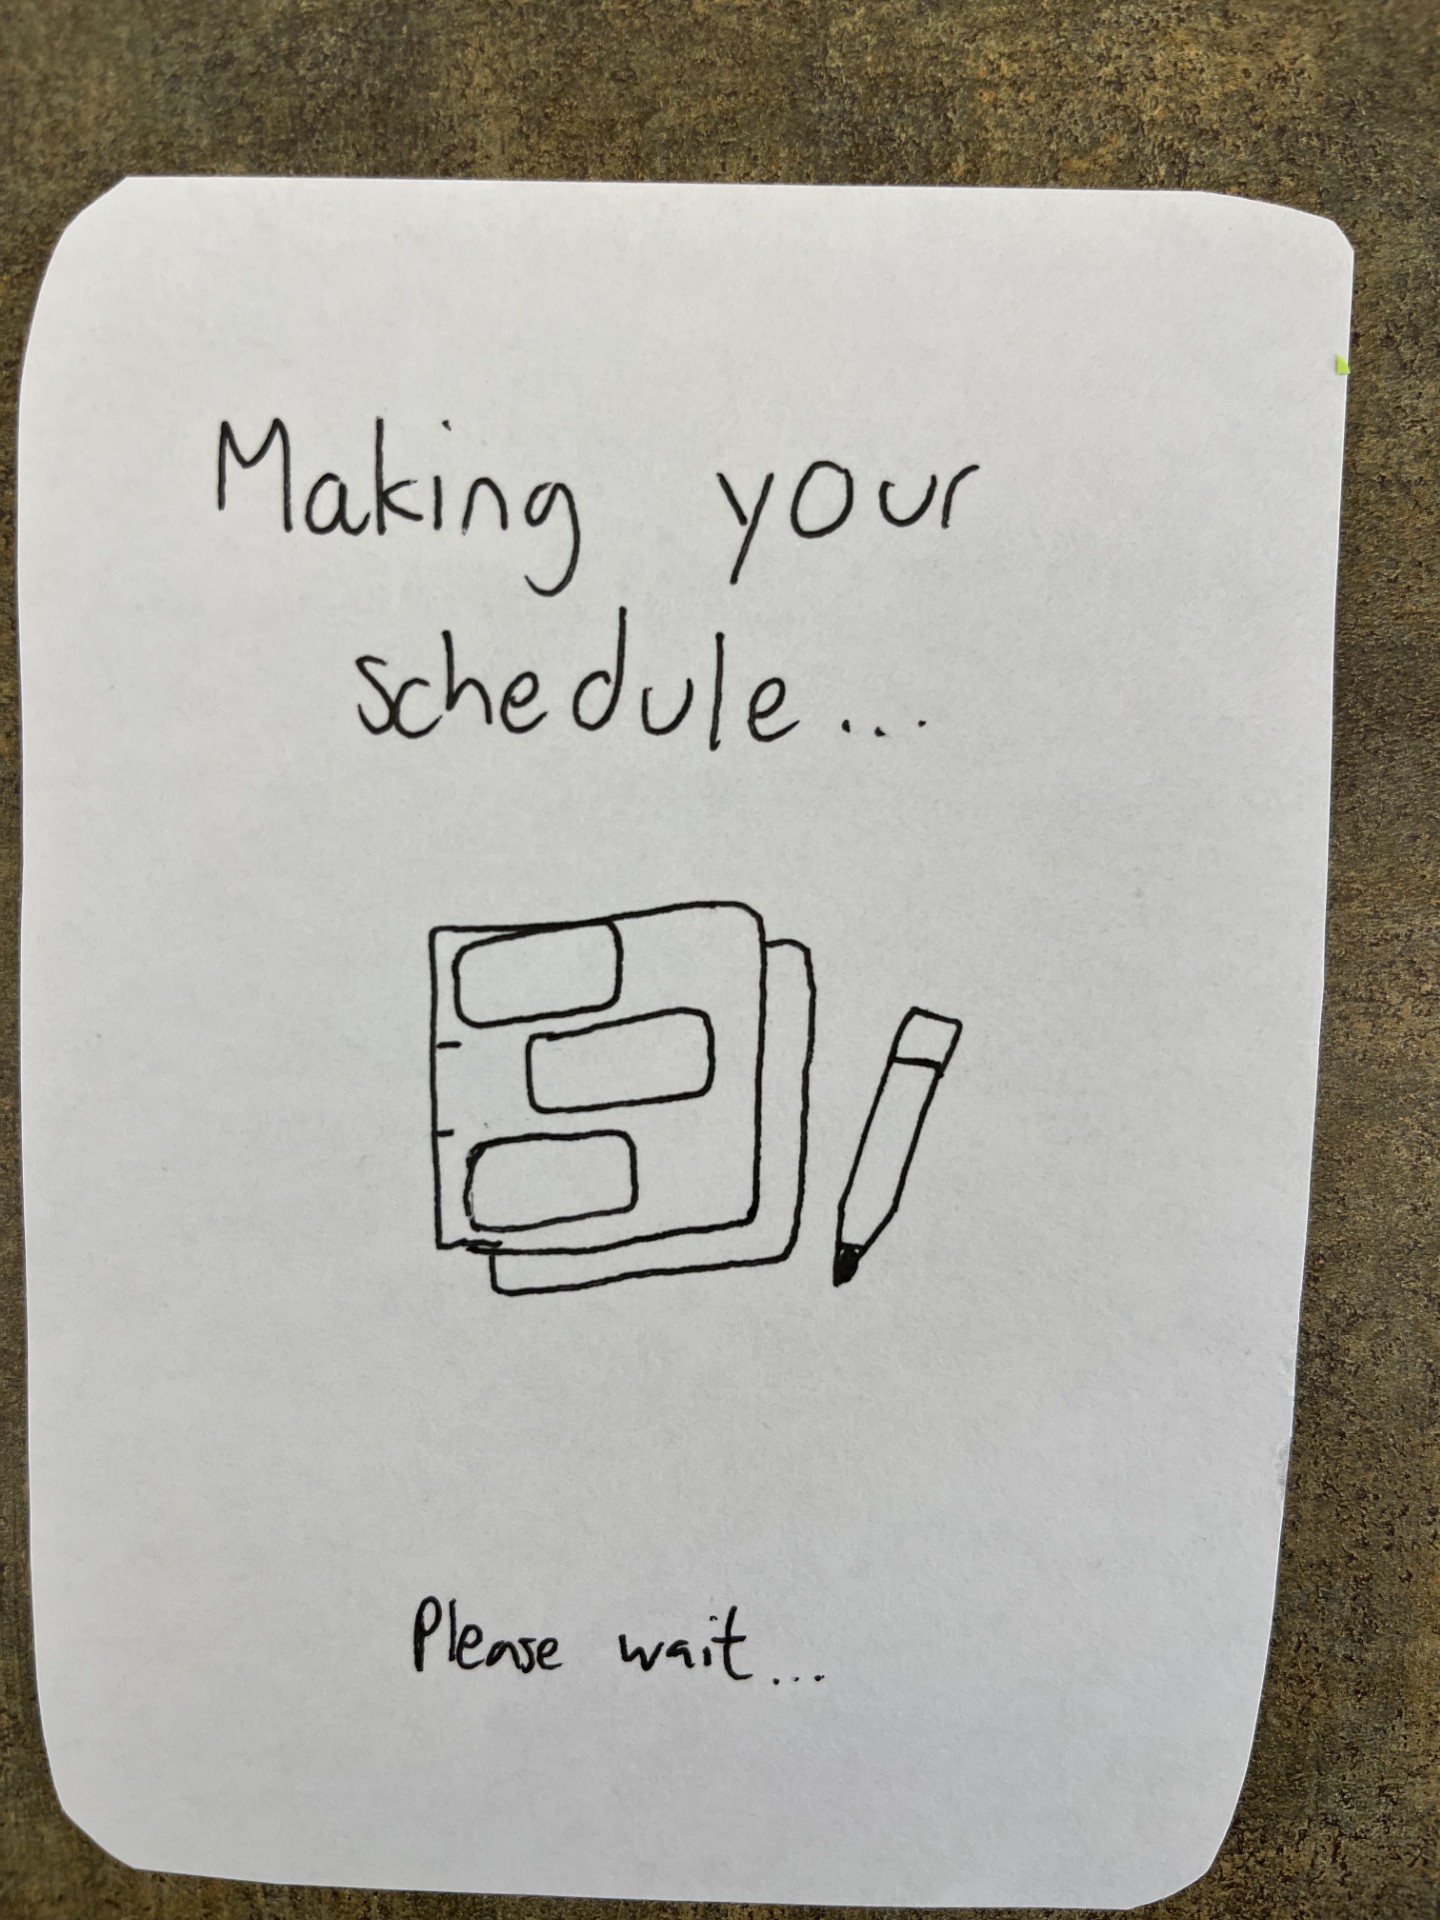 Making your
schedule...
Please wait...